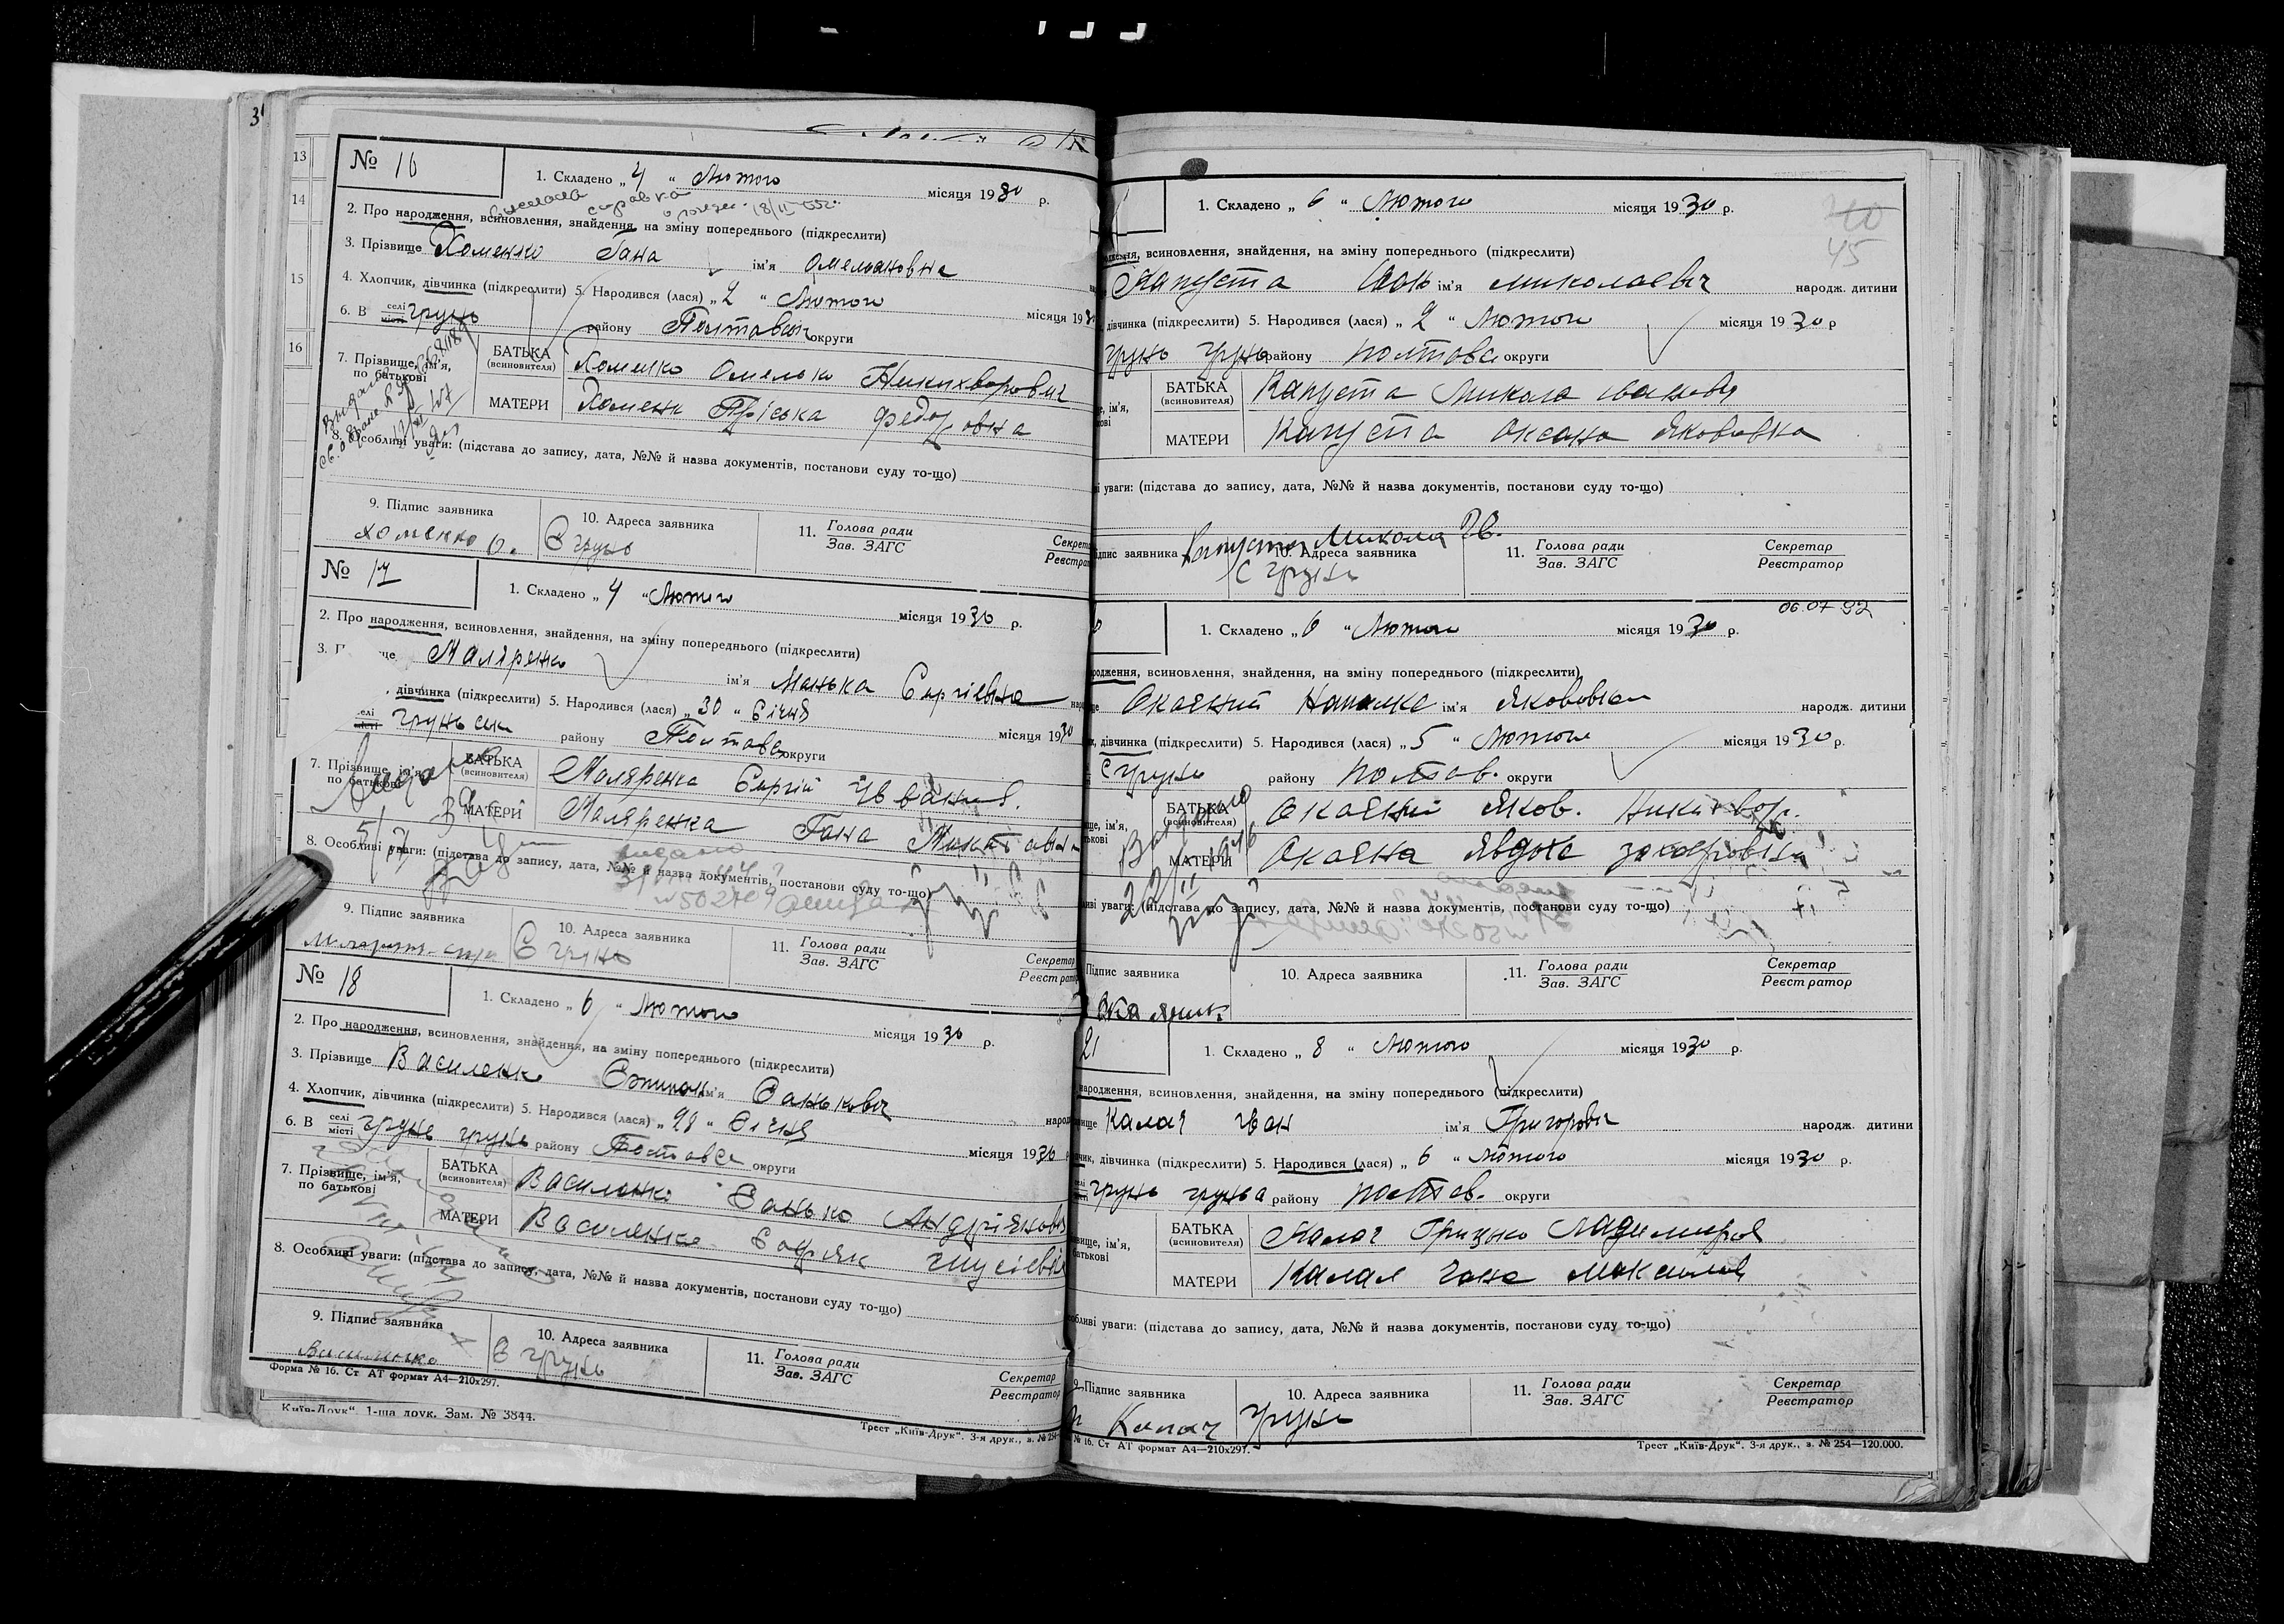 3
13
14
15
16
№ 16
1. Складено „ 4 “ Лютого місяця 1930 р.
справка
2. Про народження, всиновлення, знайдення, на зміну попереднього (підкреслити)
3. Прізвище Хоменко Гана ім'я Омеляновна
4. Хлопчик, дівчинка (підкреслити) 5. Народився (лася) „ 2 “ Лютого місяця 19
6. В селі місті Грунь району Полтавськ округи
7. Прізвище, ім'я, по батькові
БАТЬКА (всиновителя) Хоменко Омелько Никихворович
МАТЕРИ Хоменк Пріська Федоровна
8. Особливі уваги: (підстава до запису, дата, №№ й назва документів, постанови суду то-що)
9. Підпис заявника 10. Адреса заявника 11. Голова ради Зав. ЗАГС Секретар Реєстра
Хоменко О. С Грунь
№ 17
1. Складено „ 4 “ Лютого місяця 1930 р.
2. Про народження, всиновлення, знайдення, на зміну попереднього (підкреслити)
3. П ще Маляренко ім'я Манька Сергіевна
дівчинка (підкреслити) 5. Народився (лася) „ 30 “ Січня місяця 1930
селі місті Груньськ району Полтавс округи
7. Прізвище, ім'я, по батькові
БАТЬКА (всиновителя) Маляренка Сергій Иванив.
МАТЕРИ Маляренка Гана
8. Особливі уваги: (підстава до запису, дата, №№ й назва документів, постанови суду то-що)
9. Підпис заявника 10. Адреса заявника 11. Голова ради Зав. ЗАГС Секретар Реєстратор
С Грунь
№ 18
1. Складено „ 6 “ Лютого місяця 1930 р.
2. Про народження, всиновлення, знайдення, на зміну попереднього (підкреслити)
3. Прізвище Василенко ім'я Санькович
4. Хлопчик, дівчинка (підкреслити) 5. Народився (лася) „ 28 “ Січня місяця 1930
6. В селі місті Грунь Грунь району Полтавс округи
7. Прізвище, ім'я, по батькові
БАТЬКА (всиновителя) Василенко Санько Андріянови
МАТЕРИ Василенка
8. Особливі уваги: (підстава до запису, дата, №№ й назва документів, постанови суду то-що)
9. Підпис заявника 10. Адреса заявника 11. Голова ради Зав. ЗАГС Секретар Реєстратор
Василенко С Грунь
Форма № 16. Ст АТ формат А4—210х297.
„Київ-Друк“. 1-ша друк. Зам. № 3844.
Трест „Київ-Друк“. 3-я друк., з. № 254
1. Складено „ 6 “ Лютого місяця 1930 р.
45
всиновлення, знайдення, на зміну попереднього (підкреслити)
Капуста Іван ім'я Миколаевич народж. дитини
дівчинка (підкреслити) 5. Народився (лася) „ 2 “ Лютого місяця 1930 р
Грунь Грунь району Полтавс округи
БАТЬКА (всиновителя) Капуста Микола Іванов
МАТЕРИ Капуста Оксана Яковивна
уваги: (підстава до запису, дата, №№ й назва документів, постанови суду то-що)
Капуста Микола Ів.
Підпис заявника 10. Адреса заявника 11. Голова ради Зав. ЗАГС Секретар Реєстратор
С Грунь
06.07 92
1. Складено „ 6 “ Лютого місяця 1930 р.
народження, всиновлення, знайдення, на зміну попереднього (підкреслити)
Окаяний Наталка ім'я Якововна народж. дитини
дівчинка (підкреслити) 5. Народився (лася) „ 5 “ Лютого місяця 1930 р.
С Грунь району Полтав. округи
БАТЬКА (всиновителя) Окаяний Яков. Никихвор.
МАТЕРИ Окаяна Явдоха Захаровна
Видано
уваги: (підстава до запису, дата, №№ й назва документів, постанови суду то-що)
Підпис заявника 10. Адреса заявника 11. Голова ради Зав. ЗАГС Секретар Реєстратор
21
1. Складено „ 8 “ Лютого місяця 1930 р.
народження, всиновлення, знайдення, на зміну попереднього (підкреслити)
Калач Іван ім'я Григорович народж. дитини
дівчинка (підкреслити) 5. Народився (лася) „ 6 “ Лютого місяця 1930 р.
Грунь Грунь району Полтав. округи
БАТЬКА (всиновителя) Калач Грицько Ладимиров
МАТЕРИ Калач Гана Максимов
уваги: (підстава до запису, дата, №№ й назва документів, постанови суду то-що)
9. Підпис заявника 10. Адреса заявника 11. Голова ради Зав. ЗАГС Секретар Реєстратор
Калач Грунь
№ 16. Ст АТ формат А4—210х297.
Трест „Київ-Друк“. 3-я друк., з. № 254—120.000.